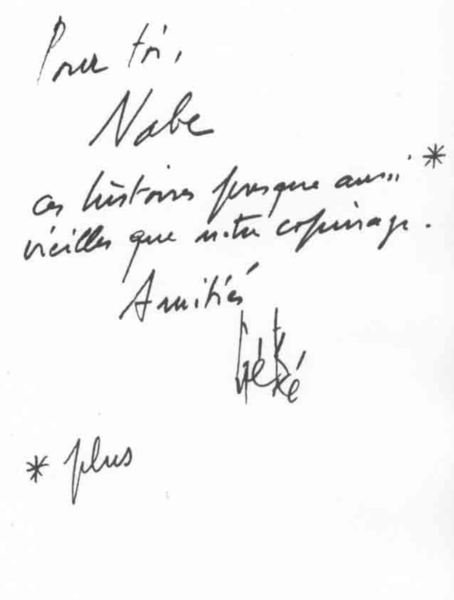 Pour toi,
Nabe
ces histoires presque aussi *
vieilles que notre copinage.
Amitiés
Gébé
* plus